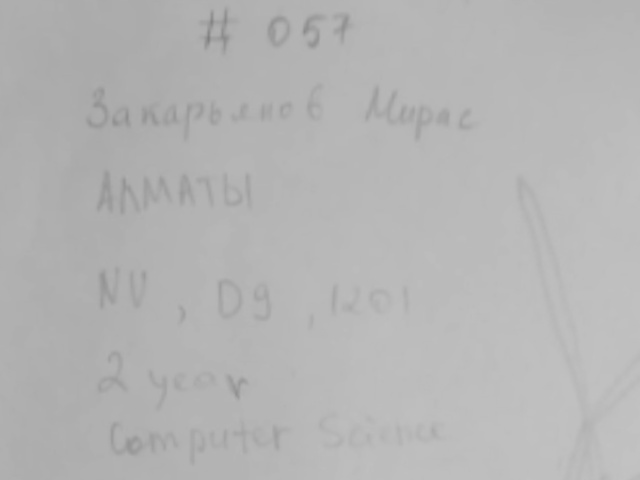 # 057
Закарьянов Мирас
АЛМАТЫ
NU, D9, 1201
2 year
Computer Science